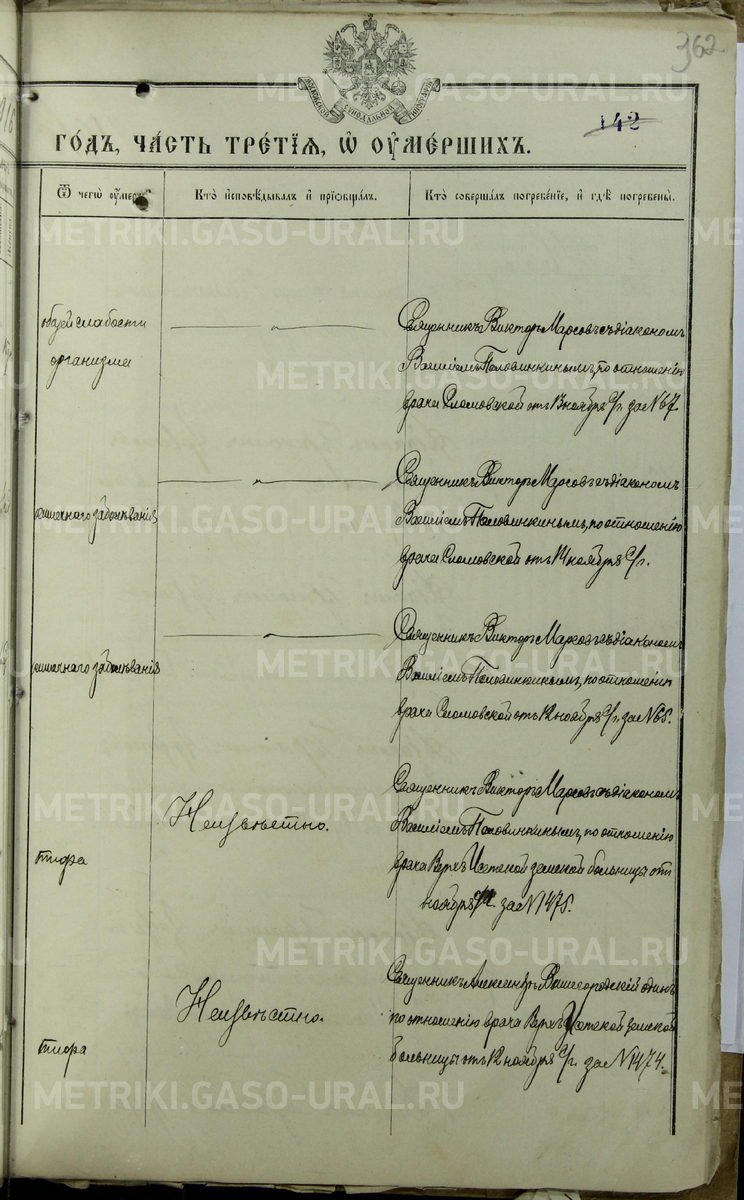 362
МОСКОВСКОЙ СѴНОДАЛЬНОЙ ТИПОГРАФІИ
142
ГОДЪ, ЧАСТЬ ТРЕТІЯ, Ѡ ОУМЕРШИХЪ.
Ѿ чегѡ оумеръ
Кто исповѣдывалъ и пріѡбщалъ.
Кто совершалъ погребеніе, и гдѣ погребены.
общей слабости
организма
Священникъ Викторъ Марсовъ съ діакономъ
Василіемъ Половинкинымъ, по отношенію
врача Сломовской отъ 13 ноября с/г. за № 67.
кишечнаго заболѣванія
Священникъ Викторъ Марсовъ съ діакономъ
Василіемъ Половинкинымъ, по отношенію
врача Сломовской отъ 14 ноября с/г.
кишечнаго заболѣванія
Священникъ Викторъ Марсовъ съ діакономъ
Василіемъ Половинкинымъ, по отношенію
врача Сломовской отъ 12 ноября с/г. за № 65.
тифа
Неизвѣстно.
Священникъ Викторъ Марсовъ съ діакономъ
Василіемъ Половинкинымъ, по отношенію
врача Верхъ Исетской земской больницы отъ
ноября за № 1475.
тифа
Неизвѣстно.
Священникъ Александръ Вышегородскій одинъ
по отношенію врача Верхъ Исетской земской
больницы отъ 12 ноября с/г. за № 1474.
METRIKI.GASO-URAL.RU